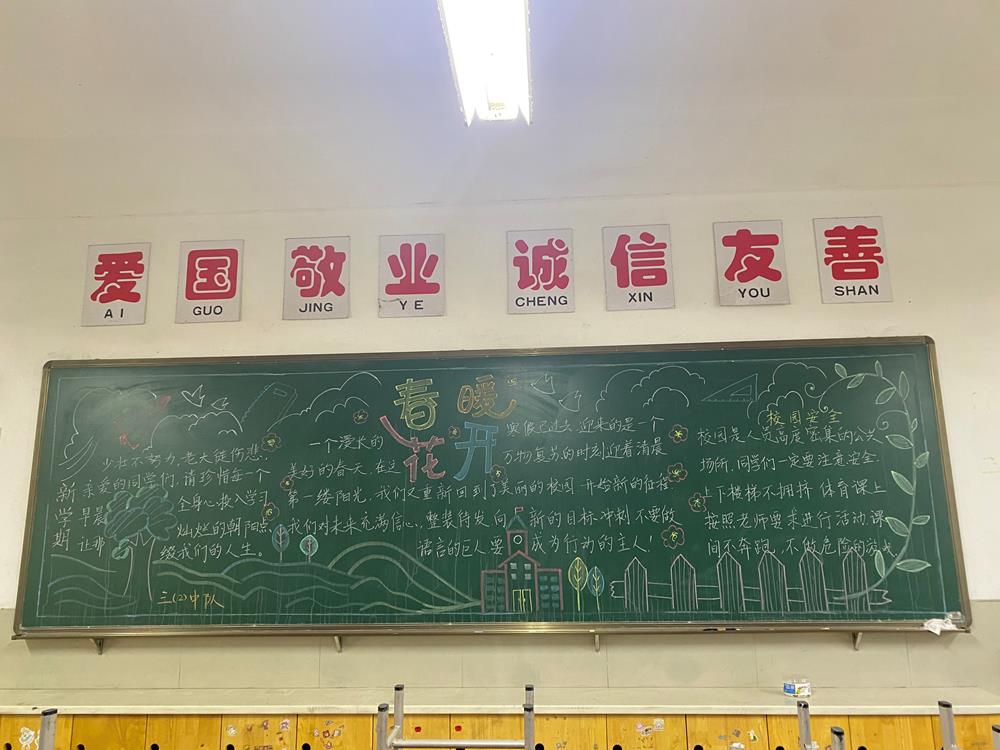 爱 国 敬 业 诚 信 友 善
AI GUO JING YE CHENG XIN YOU SHAN
春暖
花开
新学期
少壮不努力,老大徒伤悲
亲爱的同学们,请珍惜每一个
早晨 全身心投入学习
让那 灿烂的朝阳点
缀我们的人生。
三(2)中队
一个漫长的 寒假已过去 迎来的是一个
美好的春天 在这 万物复苏的时刻迎着清晨
第一缕阳光,我们又重新回到了美丽的校园 开始新的征程
我们对未来充满信心,整装待发 向 新的目标冲刺 不要做
语言的巨人 要 成为行动的主人!
校园安全
校园是人员高度密集的公共
场所,同学们一定要注意安全
上下楼梯不拥挤 体育课上
按照老师要求进行活动 课
间不奔跑,不做危险的游戏